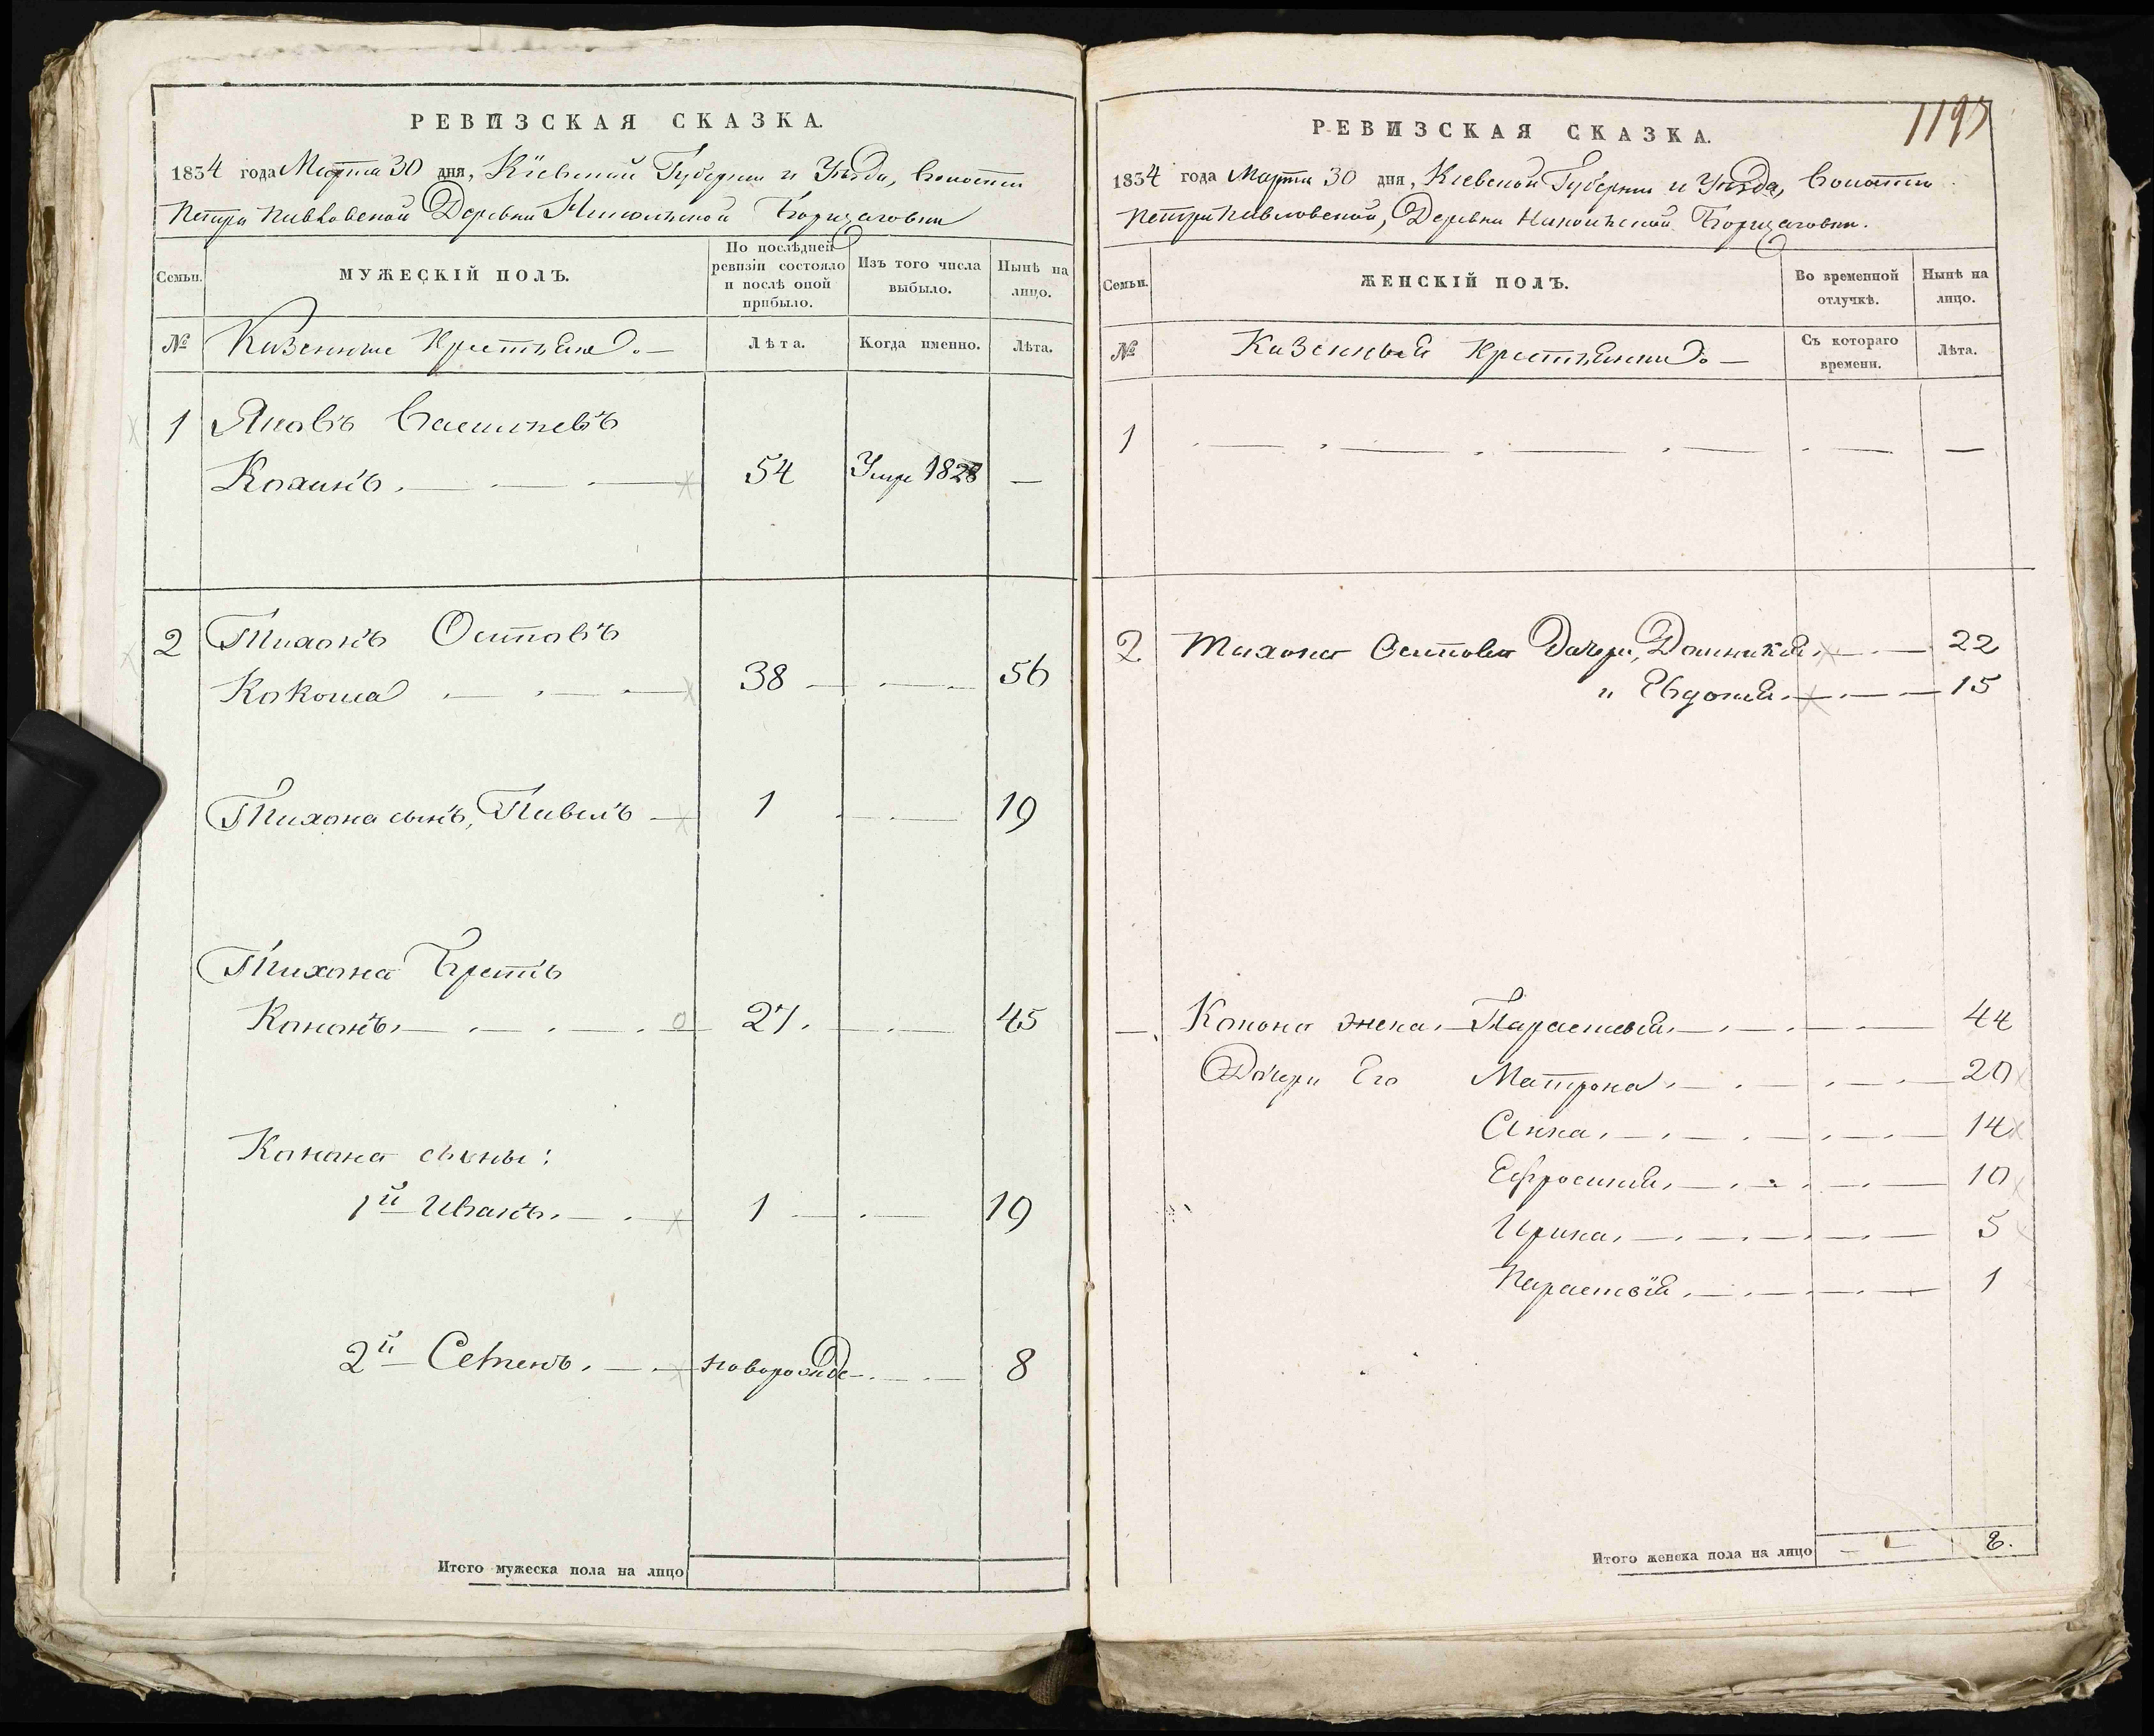 РЕВИЗСКАЯ СКАЗКА.
1834 года Марта 30 дня, Кіевской Губерніи и Уѣзда, Волости
Петро Павловской Деревни Никольской Борщаговки
Семьи.
МУЖЕСКІЙ ПОЛЪ.
По послѣдней ревизіи состояло и послѣ оной прибыло.
Изъ того числа выбыло.
Нынѣ на лицо.
№
Казенные Крестьяне.
Лѣта.
Когда именно.
Лѣта.
1 Яковъ Васильевъ
Кохинъ. 54 Умре 1828 —
2 Тихонъ Остповъ
Кокоша 38 56
Тихона сынъ, Павелъ 1 19
Тихона Братъ
Кононъ. 27. 45
Конона сыны:
1й Иванъ. 1 19
2й Семенъ. новорожде 8
Итого мужеска пола на лицо
1197
РЕВИЗСКАЯ СКАЗКА.
1834 года Марта 30 дня, Кіевской Губерніи и Уѣзда, Волости
Петропавловской, Деревни Никольской Борщаговки.
Семьи.
ЖЕНСКІЙ ПОЛЪ.
Во временной отлучкѣ.
Нынѣ на лицо.
№
Казенныя Крестьянки.
Съ котораго времени.
Лѣта.
1 — — — — — —
2 Тихона Остпова Дочери, Домникія 22
" Евдокія. 15
Конона жена. Параскевія. 44
Дочери Его Матрона. 20
Анна. 14
Ефросинія. 10
Ирина. 5
Параскевія. 1
Итого женска пола на лицо — 8.